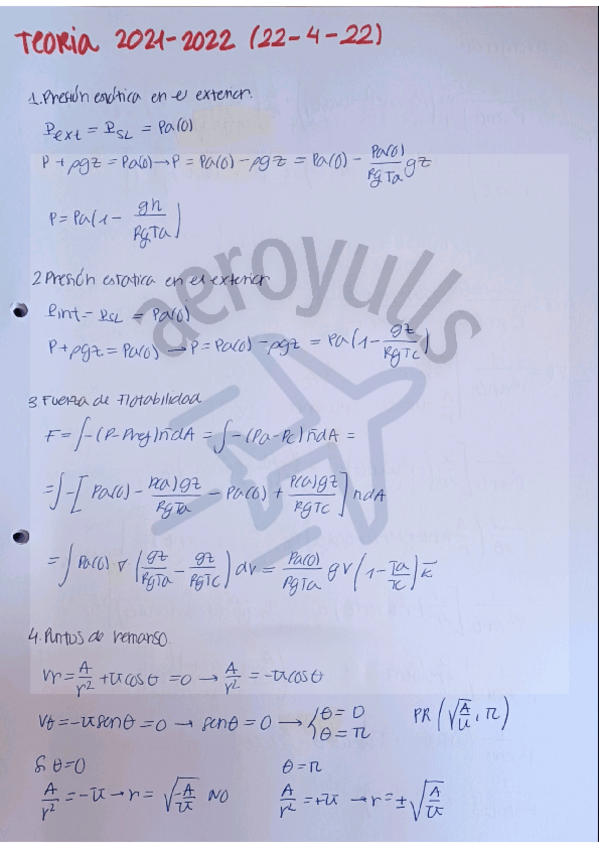 TEORIA 2021-2022 (22-4-22)
1. Presión estática en el exterior.
Pext = PSL = Pa(0)
P + ρgz = Pa(0) → P = Pa(0) - ρgz = Pa(0) - Pa(0)/RgTa gz
P = Pa(1 - gh/RgTa)
2. Presión estática en el exterior
Pint = PSL = Pa(0)
P + ρgz = Pa(0) → P = Pa(0) - ρgz = Pa(1 - gz/RgTc)
3. Fuerza de flotabilidad
F = ∫-(P-Pref)n̄dA = ∫-(Pa-Pc)n̄dA =
= ∫-[Pa(0) - P(a)gz/RgTa - Pa(0) + P(a)gz/RgTc] ndA
= ∫Pa(0) ∇ (gz/RgTa - gz/RgTc) dv = Pa(0)/RgTa gV (1 - Ta/Tc) k̄
4. Puntos de remanso.
Vr = A/r² + U cosθ = 0 → A/r² = -U cosθ
Vθ = -U senθ = 0 → senθ = 0 → {θ = 0 θ = π PR (√A/U, π)
Si θ=0 θ=π
A/r² = -U → r = √-A/U NO A/r² = +U → r = ±√A/U
aeroyulls